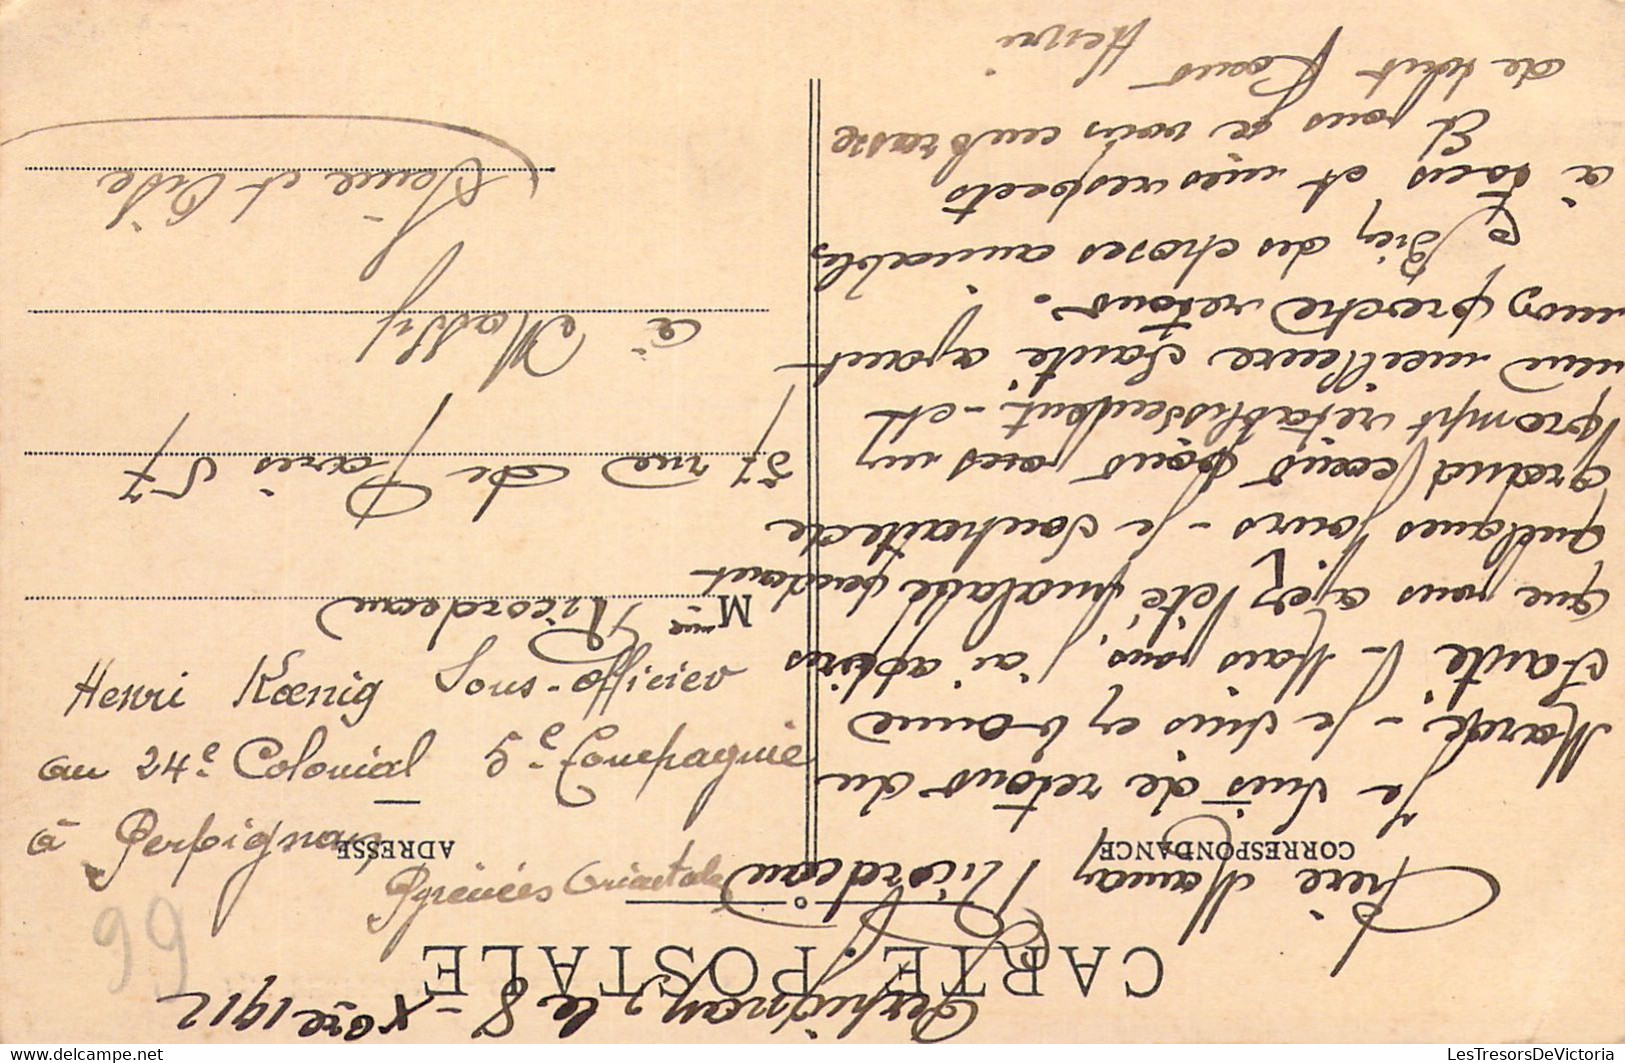 CARTE POSTALE
Perpignan, le 8 - Xbre 1912
CORRESPONDANCE
Chère Maman Ricordeau
Je suis de retour du
Maroc - je suis en bonne
santé - Mais vous, j'ai appris
que vous ayez été malade pendant
quelques jours - je souhaite de
grand coeur pour vous un
prompt rétablissement - et
une meilleure santé ayant
mon proche retour.
Bien des choses aimables
à tous et mes respects
Et vous je vous embrasse
de tout Coeur Henri
ADRESSE
Mme Ricordeau
57 rue de Paris 57
à Massy
Seine et Oise
Henri Kœnig Sous-officier
au 24e Colonial 5e Compagnie
à Perpignan
Pyrénées Orientales
99
LesTresorsDeVictoria.com